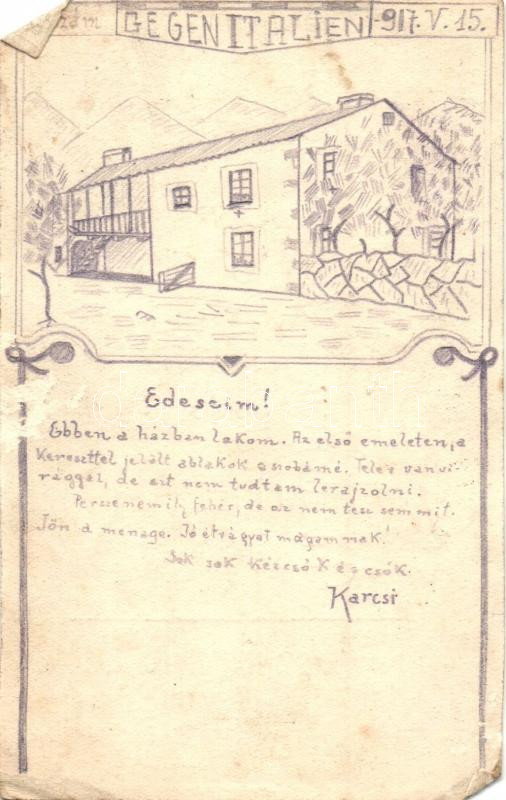 szám GEGEN ITALIEN -917.V.15.
Edeseim!
Ebben a házban lakom. Az első emeleten, a
kereszttel jelált ablakok a szobámé. Tele van vi-
rággal, de azt nem tudtam lerajzolni.
Persze nem ily fehér, de az nem tesz semmit.
Jön a menage. Jó étvágyat magamnak!
Sok sok kézcsók és csók.
Karcsi